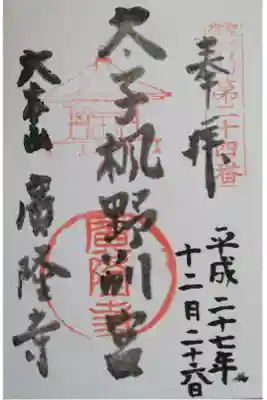 奉拝
第二十四番
太子楓野別宮
大本山 廣隆寺
廣隆寺
平成二十七年
十二月二十六日